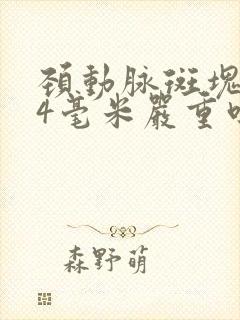 頚動脉斑塊
4毫米嚴重
森野萌